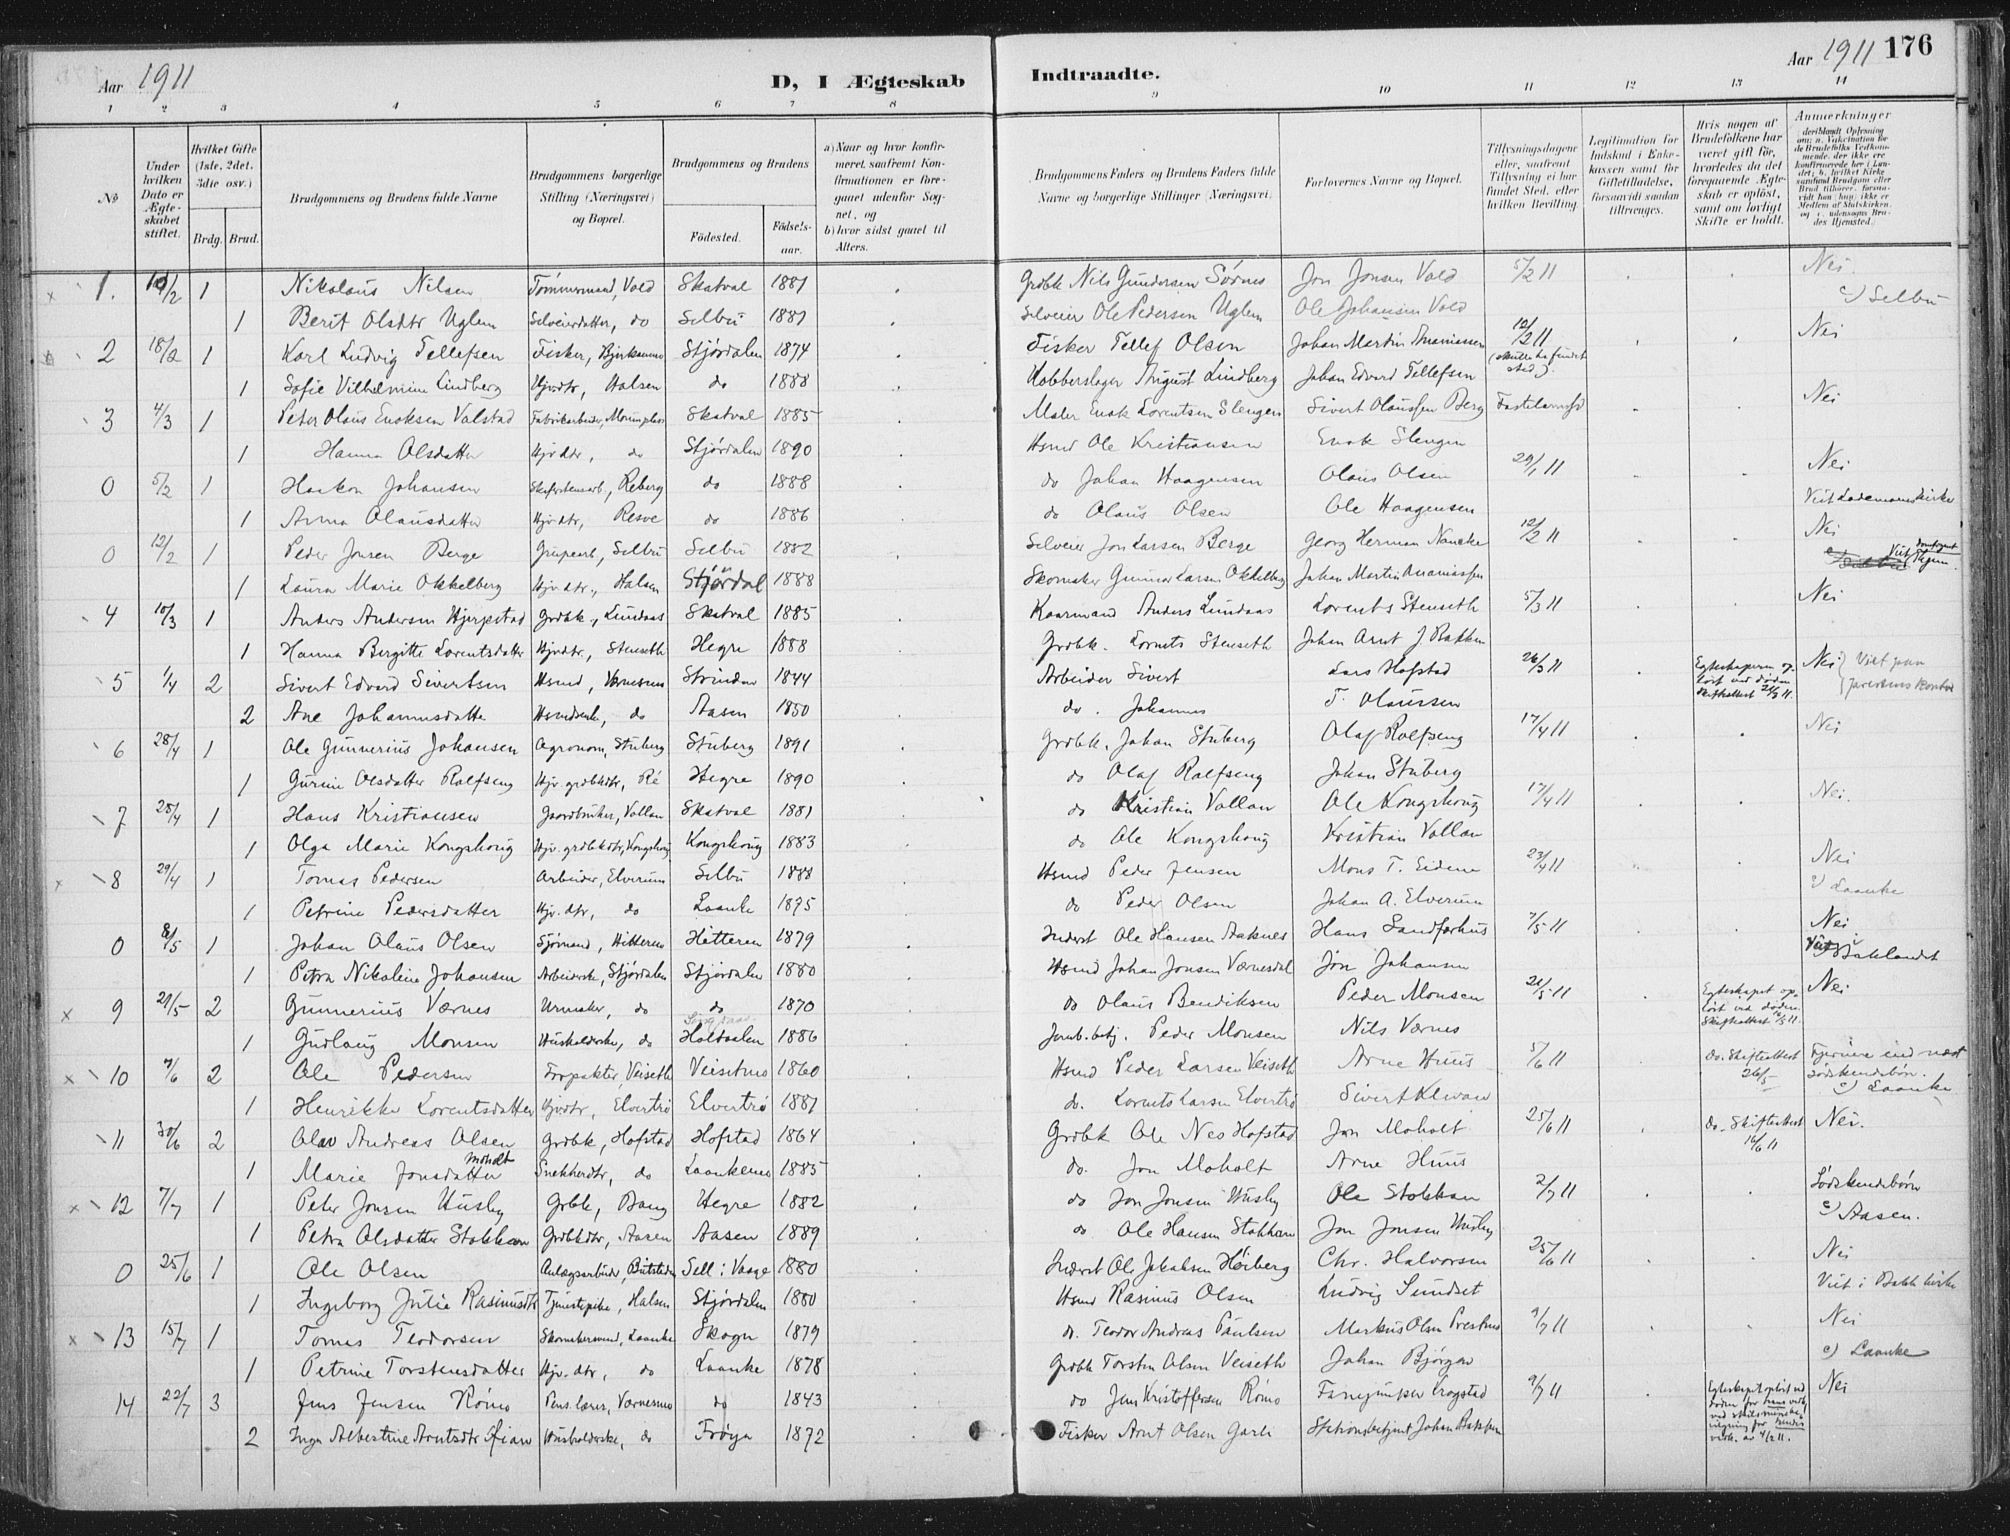 Aar 1911
D, I Ægteskab
Indtraadte.
Aar 1911 176
1 2 3 4 5 6 7 8 9 10 11 12 13 14
No
Under hvilken Dato er Ægteskabet stiftet.
Hvilket Gifte (1ste, 2det, 3die osv.)
Brdg. Brud.
Brudgommens og Brudens fulde Navne
Brudgommens borgerlige Stilling (Næringsvei) og Bopæl.
Brudgommens og Brudens
Fødested. Fødsels-aar.
a) Naar og hvor konfirmeret, saafremt Konfirmationen er foregaaet udenfor Sognet, og
b) hvor sidst gaaet til Alters.
Brudgommens Faders og Brudens Faders fulde Navne og borgerlige Stillinger (Næringsvei).
Forlovernes Navne og Bopæl.
Tillysningsdagene eller, saafremt Tillysning ei har fundet Sted, efter hvilken Bevilling.
Legitimation for Indskud i Enkekassen samt for Giftetilladelse, forsaavidt saadan tiltrænges.
Hvis nogen af Brudefolkene har været gift før, hvorledes da det foregaaende Ægteskab er opløst, samt om lovligt Skifte er holdt.
Anmerkninger
1. 10/2 1 Nikolaus Nilsen Tømmermand, Vold Skatval 1881 Grdbk Nils Gundersen Sørnes Jon Jonsen Vold 5/2 11 Nei
1 Berit Olsdtr Uglem Selveierdatter, do Selbu 1881 Selveier Ole Pedersen Uglem Ole Johansen Vold c) Selbu
2 18/2 1 Karl Ludvig Tellefsen Fisker, Stjørdalen 1874 Fisker Tellef Olsen Johan Martin Ananiassen 12/2 11 Nei
1 Sofie Vilhelmine Lindberg Hjvdtr, Halsen do 1888 Kobberslager August Lindberg Johan Edvard Tellefsen
3 4/3 1 Peter Olaus Enoksen Valstad Fabrikarbeider, Skatval 1885 Maler Enok Lorentsen Slengen Sivert Olaussen Berg Nei
1 Hanna Olsdatter Hjvdtr, do Stjørdalen 1890 Hsmd Ole Kristiansen Enok Slengen
0 5/2 1 Haakon Johansen Reberg do 1888 do Johan Haagensen Olaus Olsen 29/1 11 Nei
1 Anna Olausdatter Hjv.dtr, Resve do 1886 do Olaus Olsen Ole Haagensen Viet Lademoens kirke
0 12/2 1 Peder Jonsen Berge Grubearb, Selbu Selbu 1882 Selveier Jon Larsen Berge Georg Herman Nancke 12/2 11 Nei
1 Laura Marie Okkelberg Hjv.dtr., Halsen Stjørdal 1888 Skomaker Gunnar Larsen Okkelberg Johan Martin Ananiassen
4 10/3 1 Anders Andersen Hjerpstad Grdbk., Lundaas Skatval 1885 Kaarmand Anders Lundaas Lorents Stenseth 5/3 11 Nei
1 Hanna Bergitte Lorentsdatter Hjvdtr., Stenseth Hegre 1888 Grdbk. Lorents Stenseth Johan Arnt J. Bakken
5 1/4 2 Sivert Edvard Sivertsen Hsmd, Værnesmo Strinden 1844 Arbeider Sivert Lars Hofstad 26/3 11 Nei Viet paa
2 Ane Johannesdatter Hsmdsenke, do Aasen 1850 do. Johannes T. Olaussen
6 28/4 1 Ole Gunnerius Johansen Agronom, Stuberg Stuberg 1891 Grdbk. Johan Stuberg Olaf Rolfseng 17/4 11 Nei
1 Gurine Olsdatter Rolfseng Hjv grdbkdtr, Ré Hegre 1890 do Olaf Rolfseng Johan Stuberg
7 28/4 1 Hans Kristiansen Gaardbruker, Vollan Skatval 1881 do Kristian Vollan Ole Kongshoug 17/4 11 Nei.
1 Olga Marie Kongshoug Hjv. grdbkdtr, Kongshoug Kongshoug 1883 do Ole Kongshoug Kristian Vollan
8 29/4 1 Tomas Pedersen Arbeider, Elverum Selbu 1888 Hsmd Peder Jensen Mons T. Eidem 23/4 11 Nei
1 Petrine Pedersdatter Hjv. dtr, do Laanke 1895 do Peder Olsen Johan A. Elverum c) Laanke
0 8/5 1 Johan Olaus Olsen Sjømand, Hitteren Hitteren 1879 Inderst Ole Hansen Aaknes Hans Sandfærhus 7/5 11 Nei
1 Petra Nikoline Johansen Arbeiderske, Stjørdalen Stjørdalen 1880 Hsmd Johan Jonsen Værnesdal Jon Johansen Viet i Baklandet
9 29/5 2 Gunnerius Værnes Urmaker, do do 1870 do Olaus Bendiksen Peder Monsen 21/5 11 Egteskapet opløst ved døden. Skifteattest 12/5 11. Nei
1 Gudlaug Monsen Husholderske, do Holtaalen 1886 Jernb.betj. Peder Monsen Nils Værnes
10 7/6 2 Ole Pedersen Forpakter, Veiseth Veisetmo 1860 Hsmd Peder Larsen Veiseth Arne Huus 5/6 11 do. Skifteattest 26/5 Fjernere end næst Sødskendebørn.
1 Henrikke Lorentsdatter Hjvdtr, Elvertrø Elvertrø 1881 do. Lorents Larsen Elvertrø Sivert Klevan c) Laanke
11 30/6 2 Olav Andreas Olsen Grdbk, Hofstad Hofstad 1864 Grdbk Ole Nes Hofstad Jon Moholt 25/6 11 do. Skifteattest 16/6 11 Nei.
1 Marie Jonsdatter Moholt Snekkerdtr, do Laankemo 1885 do. Jon Moholt Arne Huus
12 7/7 1 Peter Jonsen Husby Grdbk, Bang Hegre 1882 do Jon Jonsen Husby Ole Stokkan 2/7 11 Sødskendebørn
1 Petra Olsdatter Stokkan Grdbkdtr, Aasen Aasen 1889 do Ole Hansen Stokkan Jon Jonsen Husby c) Aasen.
0 25/6 1 Ole Olsen Anlægsarbeider, Sell i Vaage 1880 Inderst Ole Jakobsen Høiberg Chr. Halvorsen 25/6 11 Nei
1 Ingeborg Julie Rasmusdtr Tjenestepike, Halsen Stjørdalen 1880 Hsmd Rasmus Olsen Ludvig Sundset Viet i Bakk kirke
13 15/7 1 Tomas Teodorsen Skomakersvend, Laanke Skogn 1879 do. Teodor Andreas Paulsen Markus Olsen Prestmo 9/7 11 Nei
1 Petrine Torstensdatter Hjv. dtr, do Laanke 1878 Grdbk Torsten Olsen Veiseth Johan Bjørgan c) Laanke
14 22/7 3 Jens Jensen Rømo Pens. lærer, Værnesmo do 1843 do Jens Kristoffersen Rømo Fanejunker Krogstad 9/7 11 Nei
2 Inga Albertine Arntsdtr Øian Husholderske, do Frøya 1872 Fisker Arnt Olsen Garli Stationsbetjent Johan Bakken